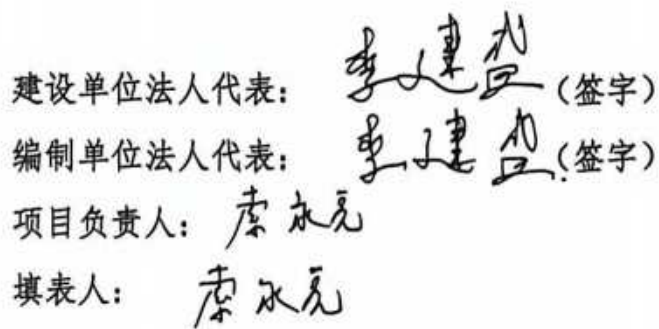 建设单位法人代表： 李建 （签字）
编制单位法人代表： 李建 （签字）
项目负责人： 永亮
填表人： 永亮